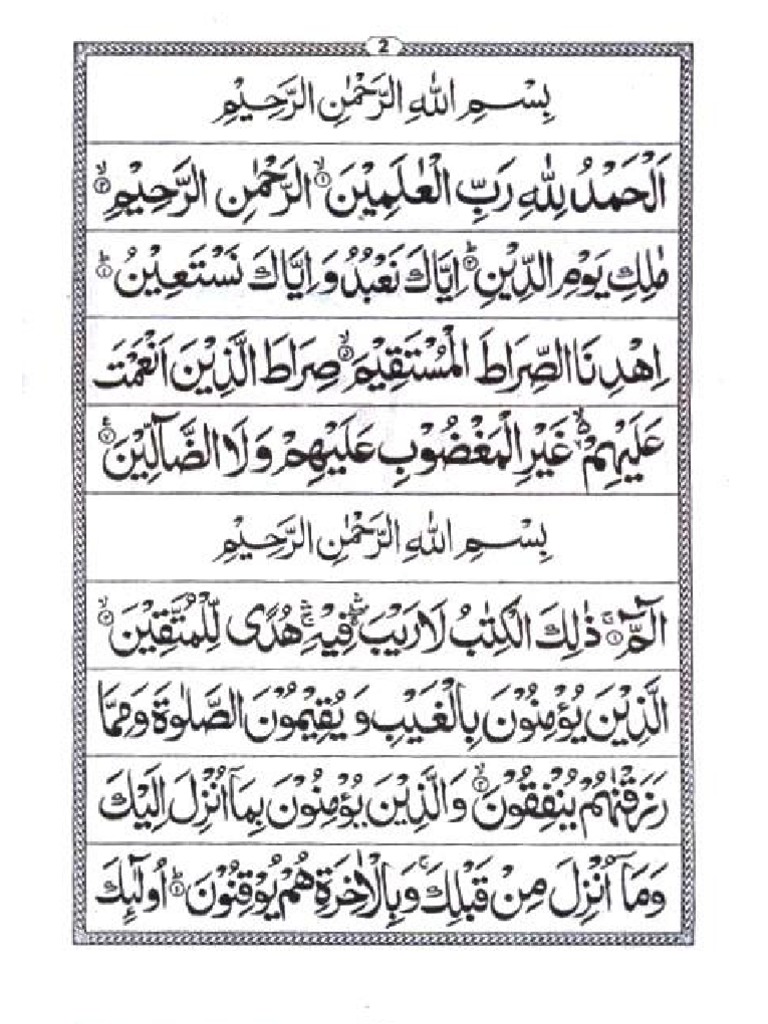 2
بِسْمِ اللّٰهِ الرَّحْمٰنِ الرَّحِيْمِ
اَلْحَمْدُ لِلّٰهِ رَبِّ الْعٰلَمِيْنَ ۙ﴿۱﴾ الرَّحْمٰنِ الرَّحِيْمِ ۙ﴿۲﴾
مٰلِكِ يَوْمِ الدِّيْنِ ؕ﴿۳﴾ اِيَّاكَ نَعْبُدُ وَ اِيَّاكَ نَسْتَعِيْنُ ؕ﴿۴﴾
اِهْدِنَا الصِّرَاطَ الْمُسْتَقِيْمَ ۙ﴿۵﴾ صِرَاطَ الَّذِيْنَ اَنْعَمْتَ
عَلَيْهِمْ ۙ﴿۶﴾ غَيْرِ الْمَغْضُوْبِ عَلَيْهِمْ وَ لَا الضَّآلِّيْنَ ﴿۷﴾
بِسْمِ اللّٰهِ الرَّحْمٰنِ الرَّحِيْمِ
الٓمّٓ ۚ﴿۱﴾ ذٰلِكَ الْكِتٰبُ لَا رَيْبَ ۛۚ فِيْهِ ۛۚ هُدًى لِّلْمُتَّقِيْنَ ۙ﴿۲﴾
الَّذِيْنَ يُؤْمِنُوْنَ بِالْغَيْبِ وَ يُقِيْمُوْنَ الصَّلٰوةَ وَ مِمَّا
رَزَقْنٰهُمْ يُنْفِقُوْنَ ۙ﴿۳﴾ وَ الَّذِيْنَ يُؤْمِنُوْنَ بِمَاۤ اُنْزِلَ اِلَيْكَ
وَ مَاۤ اُنْزِلَ مِنْ قَبْلِكَ ۚ وَ بِالْاٰخِرَةِ هُمْ يُوْقِنُوْنَ ؕ﴿۴﴾ اُولٰٓئِكَ